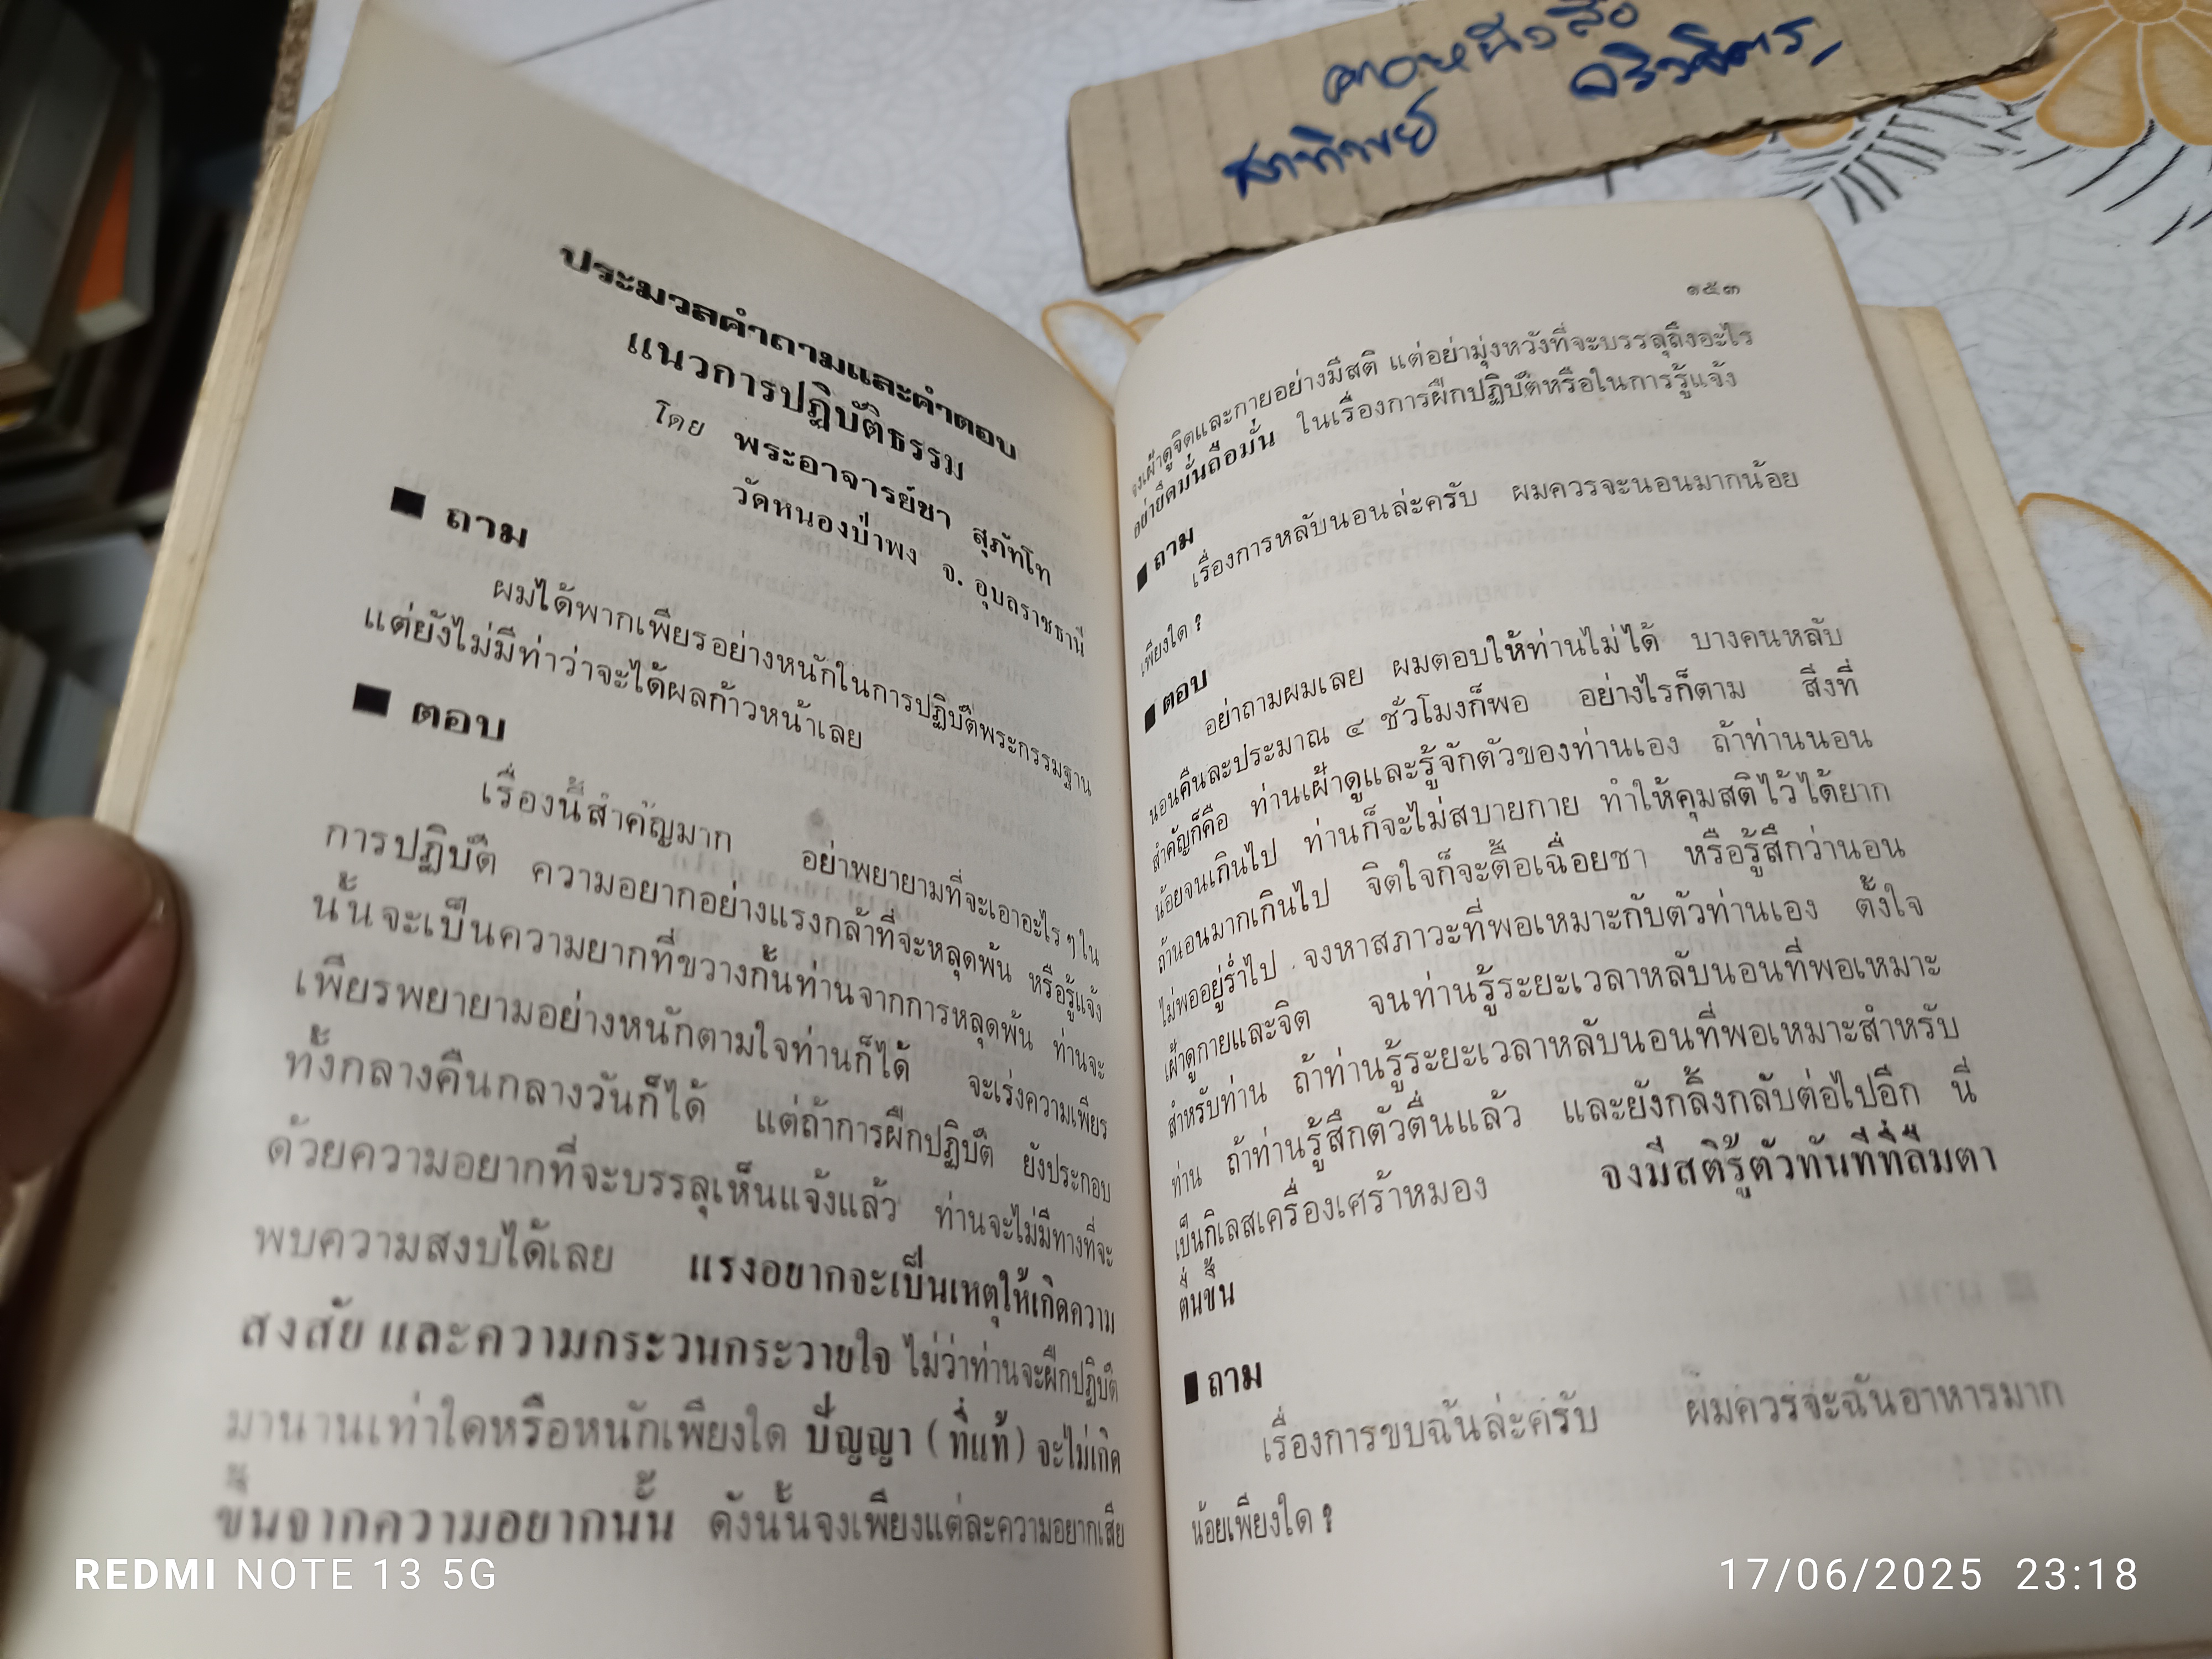 ประมวลคำถามและคำตอบ
แนวการปฏิบัติธรรม
โดย พระอาจารย์ชา สุภัทโท
วัดหนองป่าพง จ. อุบลราชธานี
■ ถาม
ผมได้พากเพียรอย่างหนักในการปฏิบัติพระกรรมฐาน
แต่ยังไม่มีท่าว่าจะได้ผลก้าวหน้าเลย
■ ตอบ
เรื่องนี้สำคัญมาก อย่าพยายามที่จะเอาอะไร ๆ ใน
การปฏิบัติ ความอยากอย่างแรงกล้าที่จะหลุดพ้น หรือรู้แจ้ง
นั้นจะเป็นความยากที่ขวางกั้นท่านจากการหลุดพ้น ท่านจะ
เพียรพยายามอย่างหนักตามใจท่านก็ได้ จะเร่งความเพียร
ทั้งกลางคืนกลางวันก็ได้ แต่ถ้าการฝึกปฏิบัติ ยังประกอบ
ด้วยความอยากที่จะบรรลุเห็นแจ้งแล้ว ท่านจะไม่มีทางที่จะ
พบความสงบได้เลย แรงอยากจะเป็นเหตุให้เกิดความ
สงสัย และความกระวนกระวายใจ ไม่ว่าท่านจะฝึกปฏิบัติ
มานานเท่าใดหรือหนักเพียงใด ปัญญา (ที่แท้) จะไม่เกิด
ขึ้นจากความอยากนั้น ดังนั้นจงเพียงแต่ละความอยากเสีย
๑๕๓
จงเฝ้าดูจิตและกายอย่างมีสติ แต่อย่ามุ่งหวังที่จะบรรลุถึงอะไร
อย่ายึดมั่นถือมั่น ในเรื่องการฝึกปฏิบัติหรือในการรู้แจ้ง
■ ถาม
เรื่องการหลับนอนล่ะครับ ผมควรจะนอนมากน้อย
เพียงใด ?
■ ตอบ
อย่าถามผมเลย ผมตอบให้ท่านไม่ได้ บางคนหลับ
นอนคืนละประมาณ ๔ ชั่วโมงก็พอ อย่างไรก็ตาม สิ่งที่
สำคัญก็คือ ท่านเฝ้าดูและรู้จักตัวของท่านเอง ถ้าท่านนอน
น้อยจนเกินไป ท่านก็จะไม่สบายกาย ทำให้คุมสติไว้ได้ยาก
ถ้านอนมากเกินไป จิตใจก็จะตื้อเฉื่อยชา หรือรู้สึกว่านอน
ไม่พออยู่ร่ำไป จงหาสภาวะที่พอเหมาะกับตัวท่านเอง ตั้งใจ
เฝ้าดูกายและจิต จนท่านรู้ระยะเวลาหลับนอนที่พอเหมาะ
สำหรับท่าน ถ้าท่านรู้ระยะเวลาหลับนอนที่พอเหมาะสำหรับ
ท่าน ถ้าท่านรู้สึกตัวตื่นแล้ว และยังกลิ้งกลับต่อไปอีก นี่
เป็นกิเลสเครื่องเศร้าหมอง จงมีสติรู้ตัวทันทีที่ลืมตา
ตื่นขึ้น
■ ถาม
เรื่องการขบฉันล่ะครับ ผมควรจะฉันอาหารมาก
น้อยเพียงใด ?
REDMI NOTE 13 5G
17/06/2025 23:18